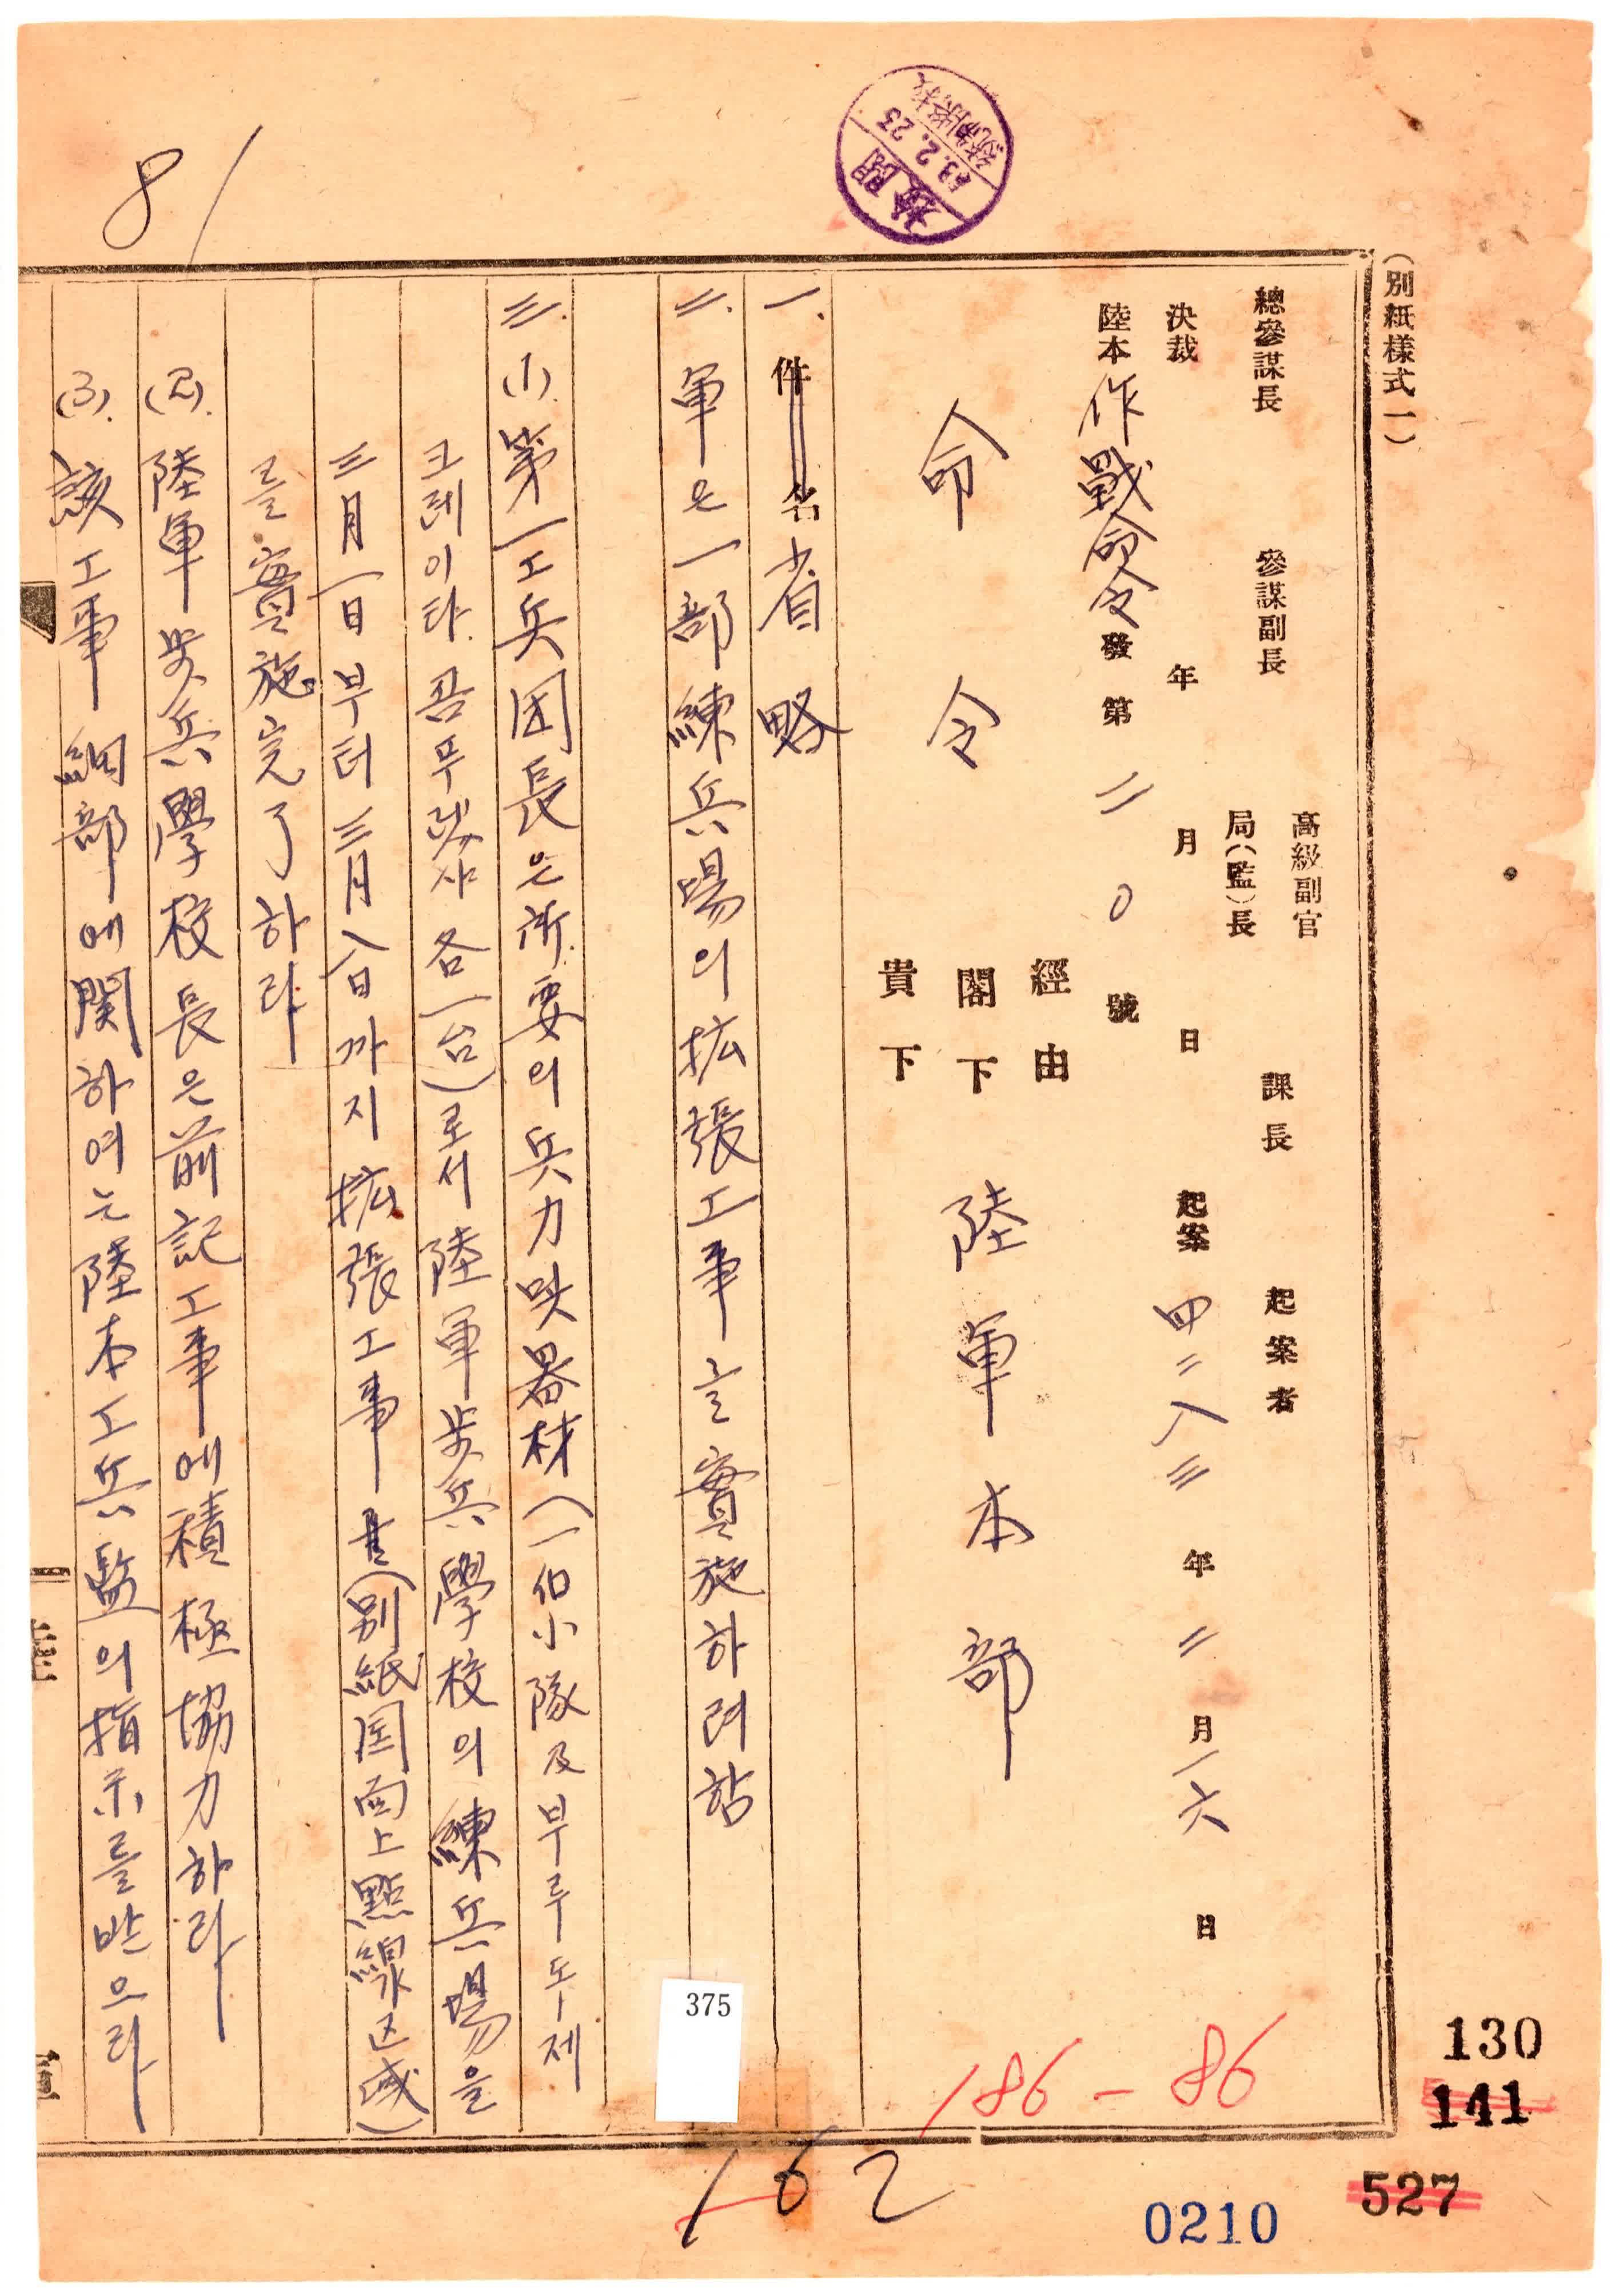 (別紙樣式一)
總參謀長 參謀副長 高級副官 局(監)長 課長 起案者
決裁 年 月 日 起案 四二八三年二月一六日
陸本作戰命令發第二0號
經由
命令 閣下 陸軍本部
貴下
一、件名 省略
二、軍은一部練兵場의拡張工事를實施하려함
三、(1).第一工兵団長은所要의兵力과器材(一個小隊及부루도제
크레이타.콤푸렛사各一台)로서陸軍步兵學校의練兵場을
三月一日부터三月八日까지拡張工事(別紙図面上點線区域)
를實施完了하라
(2).陸軍步兵學校長은前記工事에積極協力하라
(3).該工事細部에関하여는陸本工兵監의指示를받으라
檢閱
53.2.23
81
375
186-86
162
130
141
527
0210